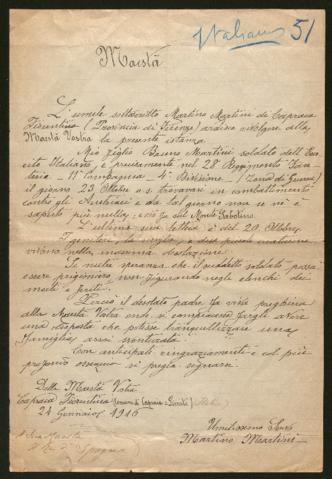 Italiano 51
Maestà
L'umile sottoscritto Martino Martini di Capraia
Fiorentina (Provincia di Firenze) ardisce rivolgere alla
Maestà Vostra la presente istanza.
Mio figlio Bruno Martini soldato dell'Eser
cito Italiano, e precisamente nel 28º Reggimento Fan
teria - 11ª Compagnia - 4º Plotone - (Zona di Guerra)
il giorno 23 Ottobre u. s. trovavasi in combattimento
contro gli Austriaci e da tal giorno non se ne è
saputo più nulla: ciò fu sul Monte Sabotino.
L'ultima sua lettera è del 20 Ottobre.
I genitori, la moglie, e due piccole creature
vivono nella massima desolazione.
Si nutre speranza che il predetto soldato possa
essere prigioniero non figurando negli elenchi dei
morti e feriti.
Perciò il desolato padre fa viva preghiera
alla Maestà Vostra onde si compiaccia fargli avere
una risposta che possa tranquillizzare una
famiglia assai sventurata.
Con anticipati ringraziamenti e col più
profondo ossequio si pregia segnarsi
Della Maestà Vostra
Capraia Fiorentina
24 Gennaio 1916
Umilissimo Servo
Martino Martini
A Sua Maestà